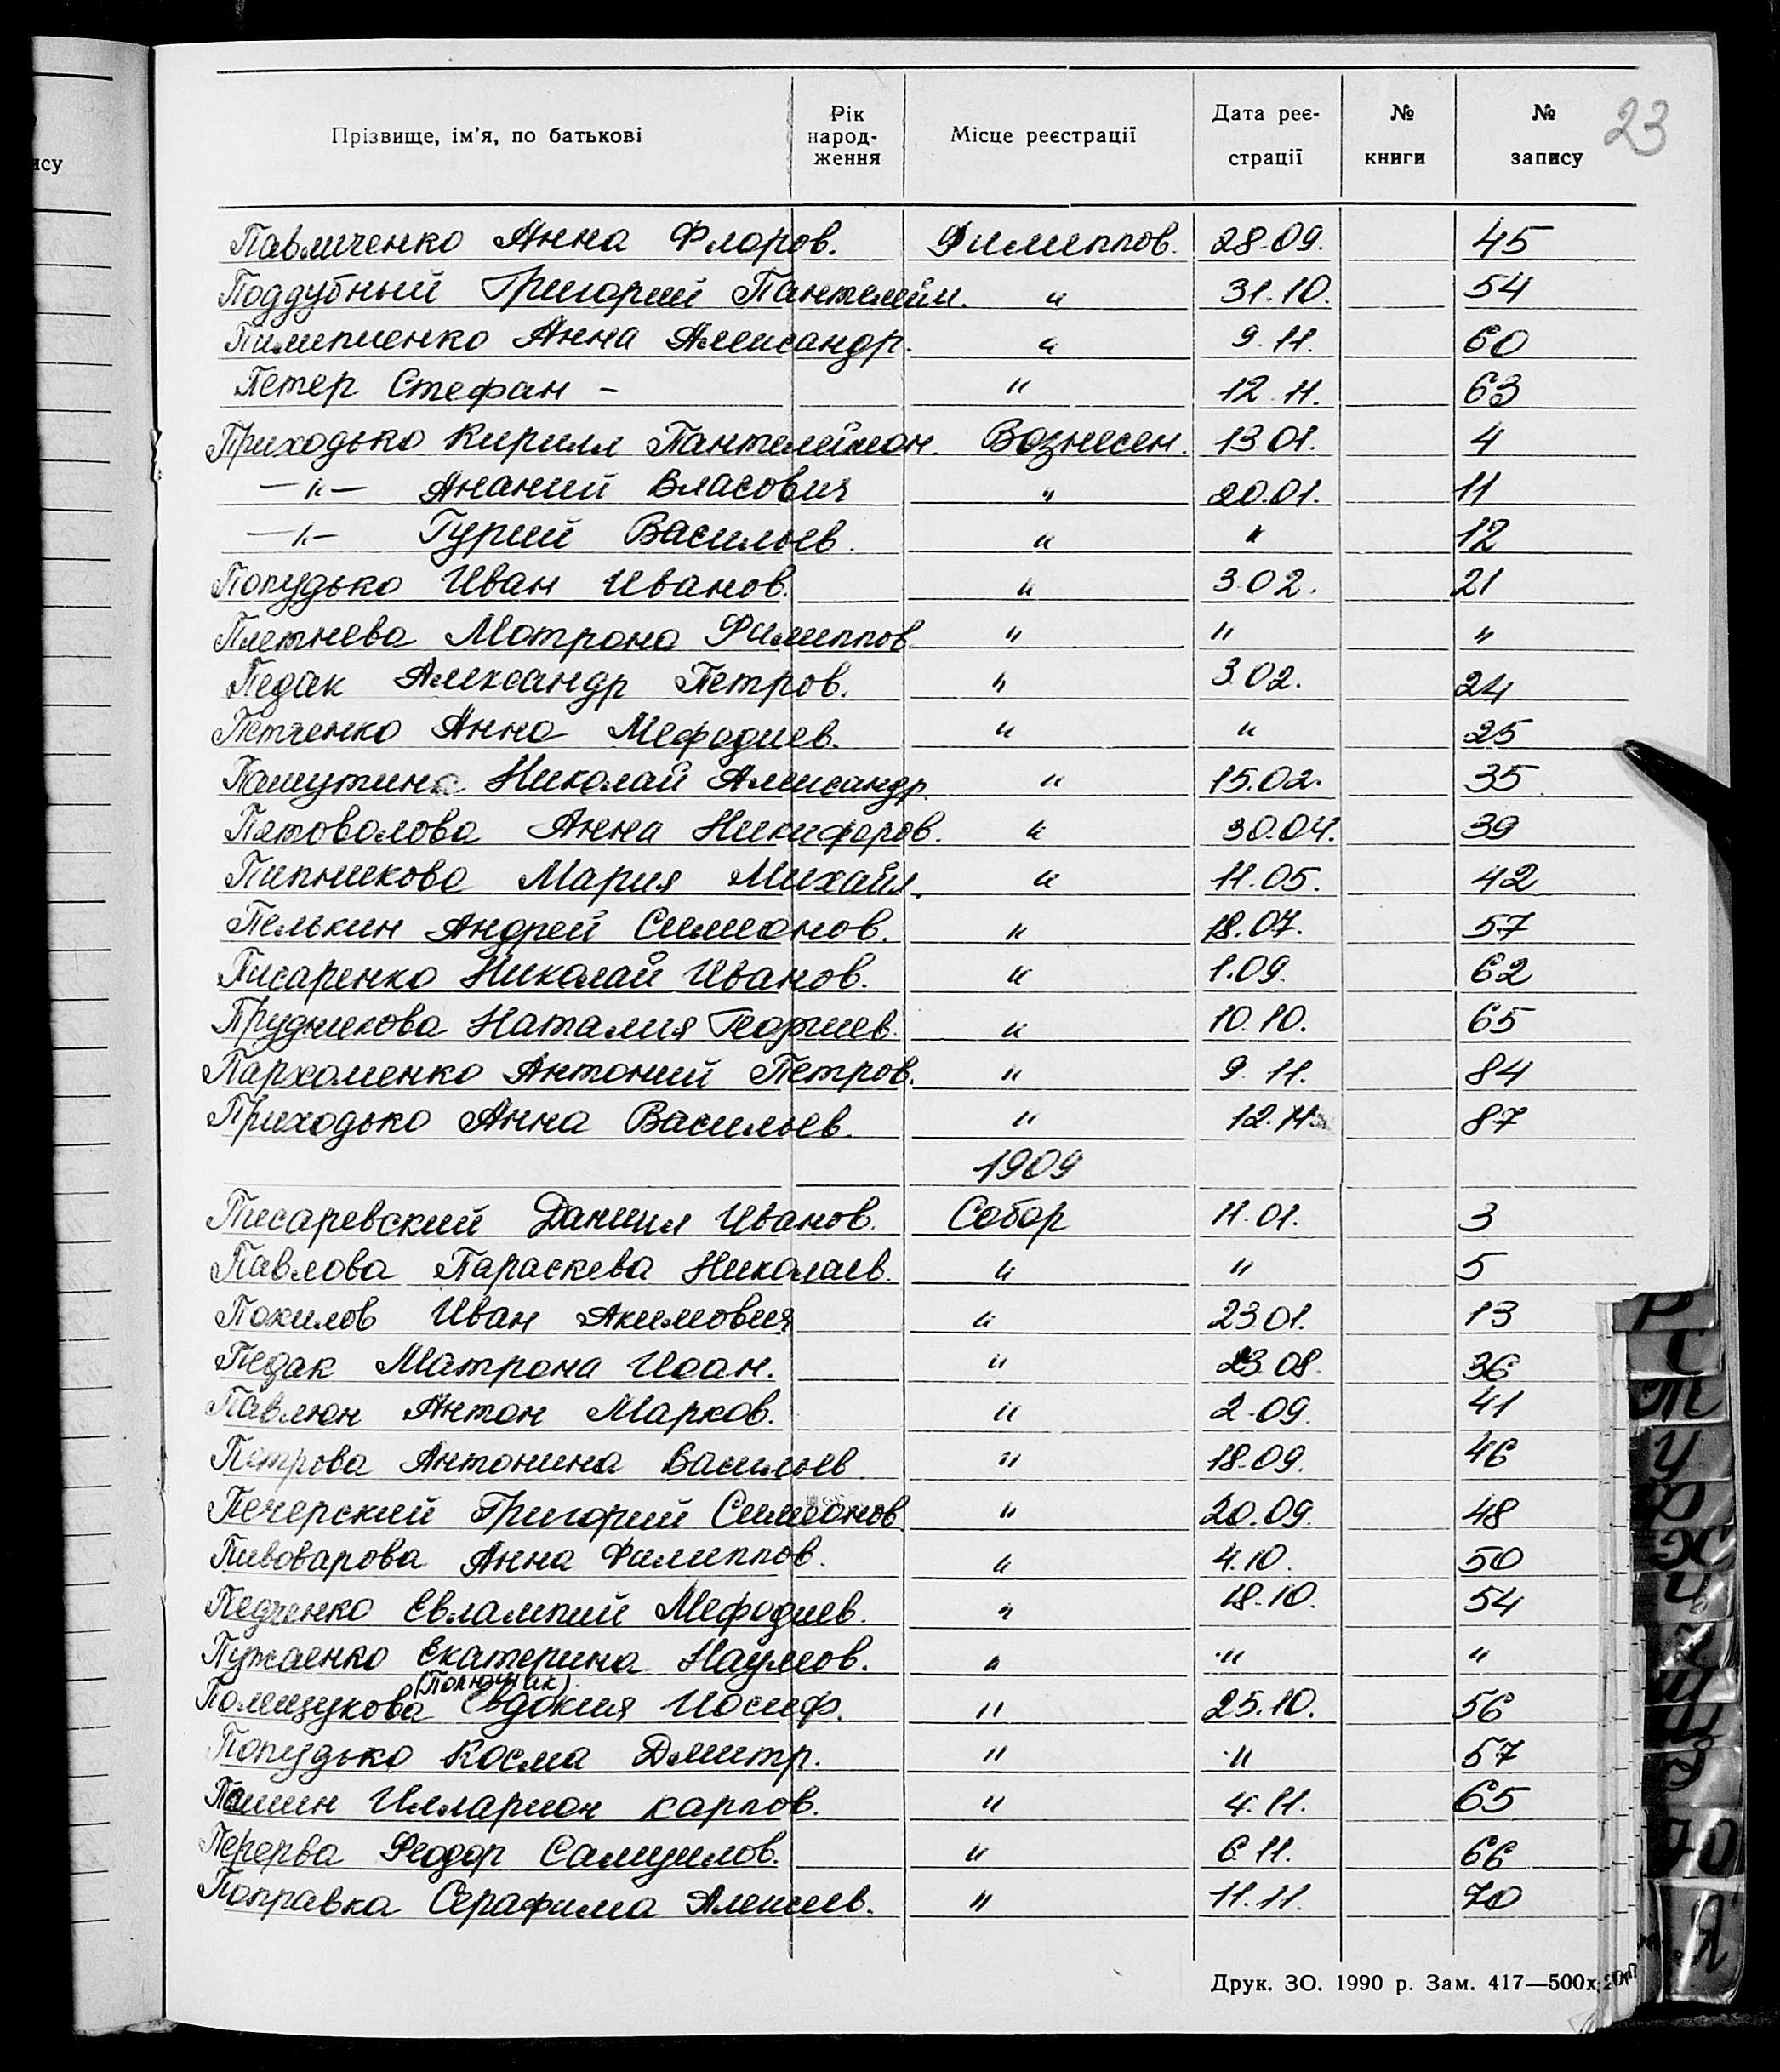 23
Прізвище, ім'я, по батькові Рік народ-ження Місце реєстрації Дата реє-страції № книги № запису
Павличенко Анна Флоров. Филиппов. 28.09. 45
Поддубный Григорий Пантелейм. " 31.10. 54
Пилипненко Анна Александр. " 9.11. 60
Петер Стефан – " 12.11. 63
Приходько Кирилл Пантелеймон. Вознесен. 13 01. 4
—"— Ананий Власович " 20.01. 11
—"— Гурий Васильев. " " 12
Попудько Иван Иванов. " 3.02. 21
Плетнева Матрона Филиппов " " "
Педак Александр Петров. " 3.02. 24
Петченко Анна Мефодиев. " " 25
Николай Александр. " 15.02. 35
Пятоволова Анна Никифоров. " 30.04. 39
Пипникова Мария Михайл. " 11.05. 42
Пелькин Андрей Симеонов. " 18.07. 57
Писаренко Николай Иванов. " 1.09. 62
Прудникова Наталия Георгиев. " 10.10. 65
Пархоменко Антоний Петров. " 9.11. 84
Приходько Анна Васильев. " 12.11. 87
1909
Писаревский Даниил Иванов. Собор 11.01. 3
Павлова Параскева Николаев. " " 5
Покилов Иван Акимович " 23.01. 13
Педак Матрона Иоан. " 23.08. 36
Павлюн Антон Марков. " 2.09. 41
Петрова Антонина Васильев " 18.09. 46
Печерский Григорий Симеонов. " 20.09. 48
Пивоварова Анна Филиппов. " 4.10. 50
Педченко Евлампий Мефодиев. " 18.10. 54
Екатерина Наумов. " " "
Полещукова Евдокия Иосиф. " 25.10. 56
Попудько Косма Дмитр. " " 57
Илларион Карпов. " 4.11. 65
Перерва Феодор Самуилов. " 6.11. 66
Поправка Серафима Алексеев. " 11.11. 70
Друк. ЗО. 1990 р. Зам. 417—500х
Р
С
Т
У
Ю
Я